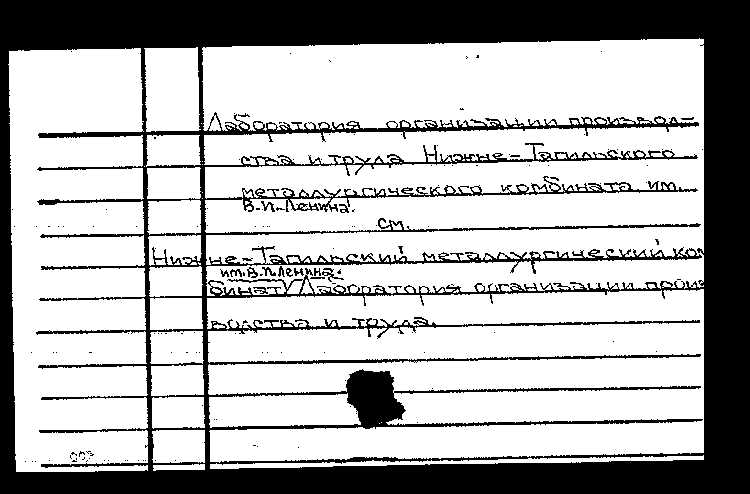 Лаборатория организации производ-
ства и труда Нижне-Тагильского
металлургического комбината им.
В.И.Ленина.
см.
Нижне-Тагильский металлургический ком
им.В.И.Ленина.
бинат/Лаборатория организации произ
водства и труда.